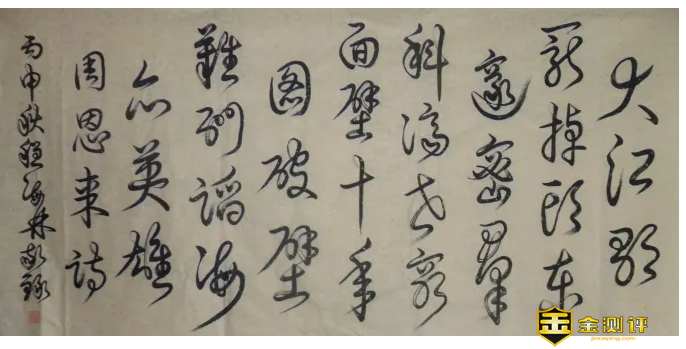 大江歌
罷掉頭東
邃密羣
科濟世窮
面壁十年
圖破壁
難酬蹈海
亦英雄
周恩来詩
丙申秋程海林敬錄
金测评
jinceping.com